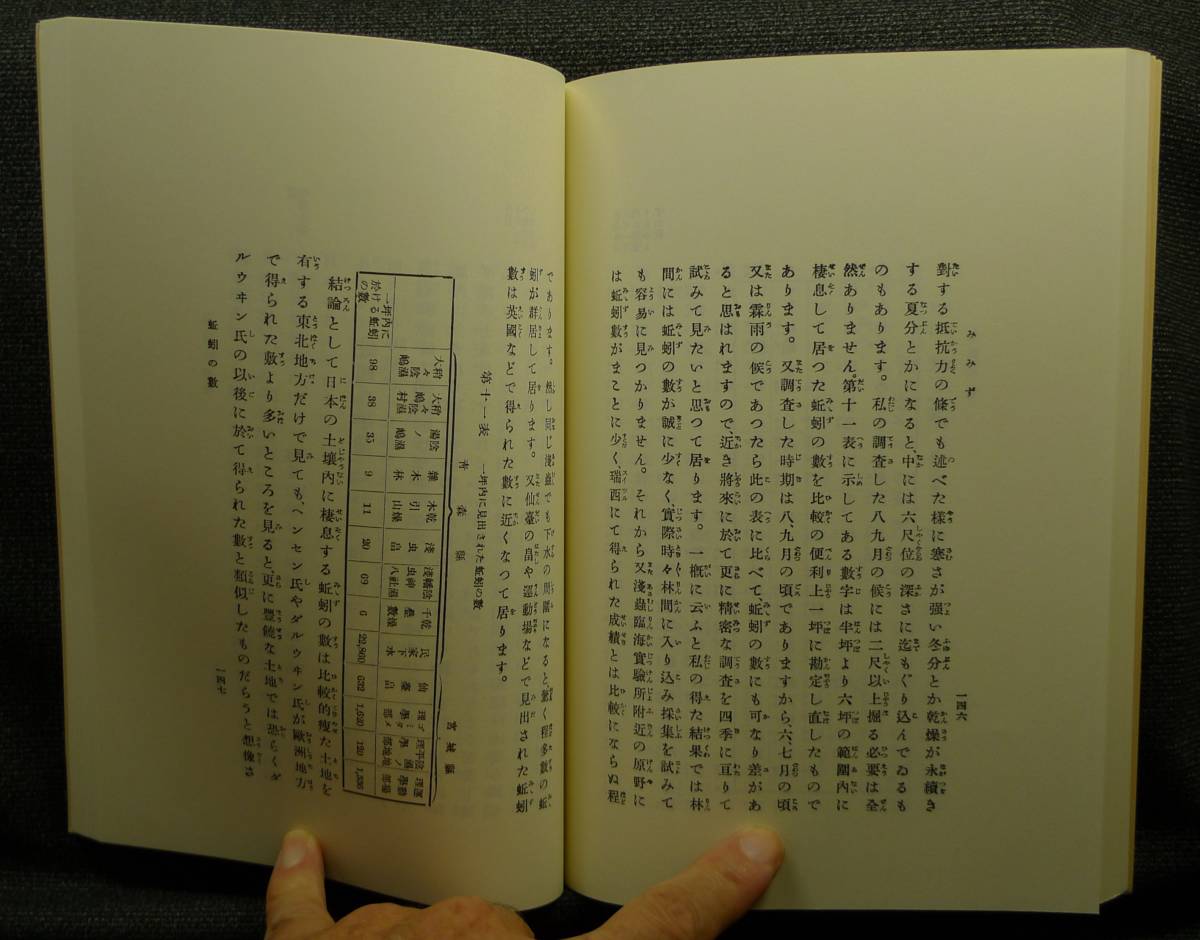 みみず
一四六
對する抵抗力の條でも述べた樣に寒さが強い冬分とか乾燥が永續き
する夏分とかになると、中には六尺位の深さに迄もぐり込んでゐるも
のもあります。私の調査した八九月の候には二尺以上掘る必要は全
然ありません。第十一表に示してある數字は半坪より六坪の範圍內に
棲息して居つた蚯蚓の數を比較の便利上一坪に勘定し直したもので
あります。又調査した時期は八、九月の頃でありますから、六、七月の頃
又は霖雨の候であつたら此の表に比べて、蚯蚓の數にも可なり差があ
ると思はれますので、近き將來に於て更に精密な調査を四季に亘りて
試みて見たいと思つて居ます。一槪に云ふと私の得た結果では林
間には蚯蚓の數が誠に少なく、實際時々林間に入り込み採集を試みて
も容易に見つかりません。それから又淺蟲臨海實驗所附近の原野に
は蚯蚓數がまことに少く、瑞西にて得られた成績とは比較にならぬ程
であります。然し同じ淺蟲でも下水の間隙になると、驚く程多數の蚯
蚓が群居して居ります。又仙臺の畠や運動場などで見出された蚯蚓
數は英國などで得られた數に近くなつて居ります。
第十一表　一坪內に見出された蚯蚓の數
靑森縣
宮城縣
一坪內に於ける蚯蚓の數
98
38
35
雜木林
9
木引山燥
11
淺虫畠
20
6
民家下水
22,800
仙臺畠
632
120
結論として日本の土壤內に棲息する蚯蚓の數は比較的瘦た土地を
有する東北地方だけで見ても、ヘンセン氏やダルウヰン氏が歐洲地方
で得られた數より多いところを見ると、更に豐饒な土地では恐らくダ
ルウヰン氏の以後に於て得られた數と類似したものだらうと想像さ
蚯蚓の數
一四七